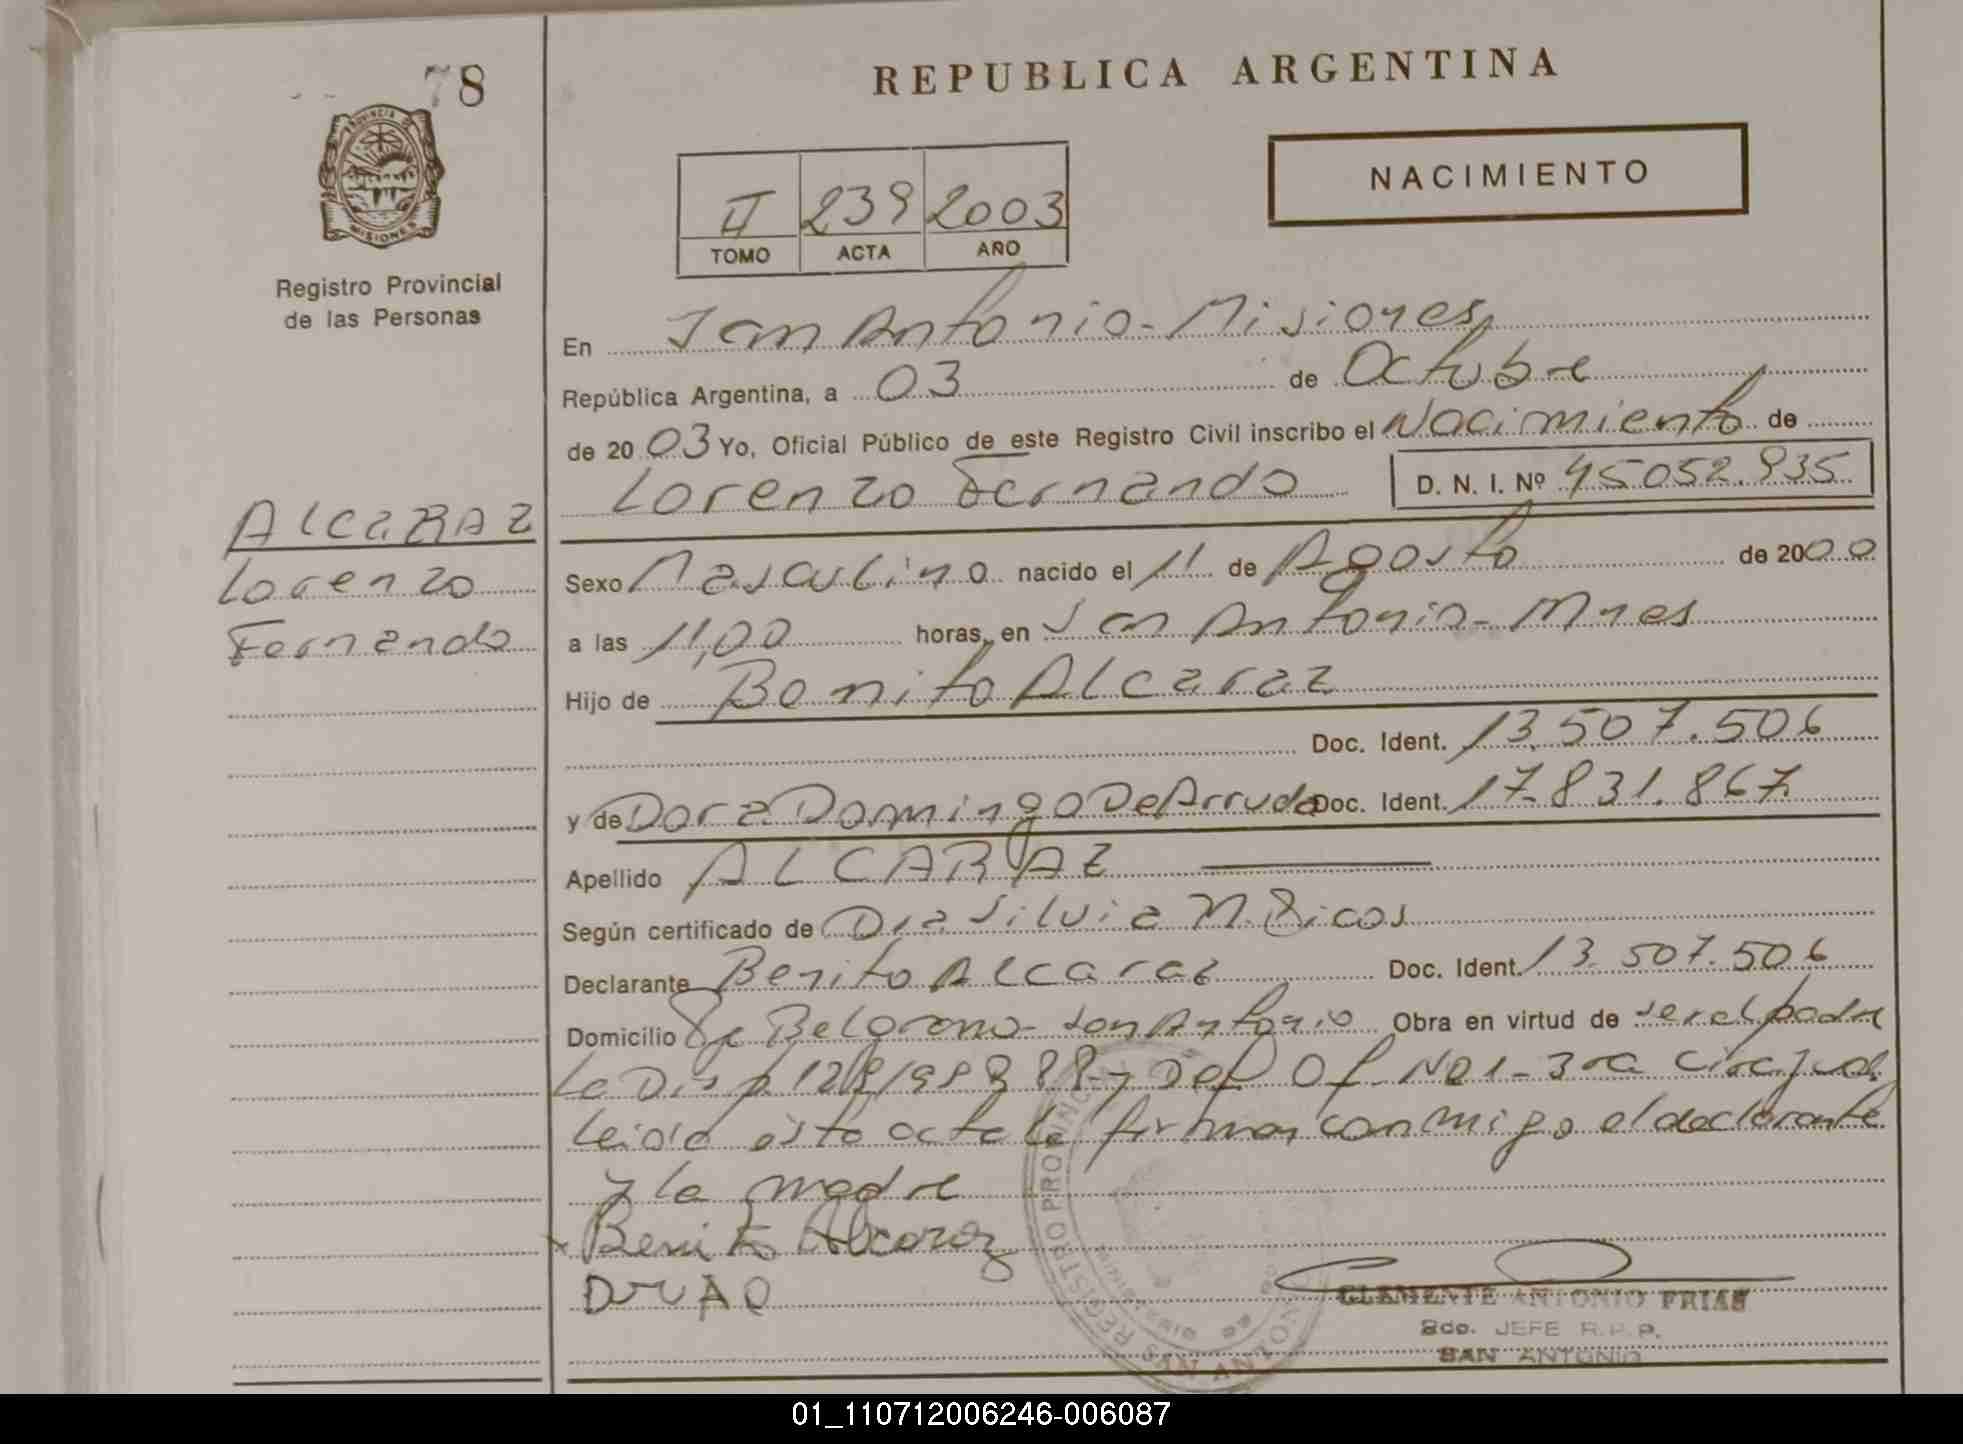 78
REPUBLICA ARGENTINA
PROVINCIA DE
MISIONES
Registro Provincial
de las Personas
II 239 2003
TOMO ACTA AÑO
NACIMIENTO
En San Antonio - Misiones
República Argentina, a 03 de Octubre
de 2003 Yo, Oficial Público de este Registro Civil inscribo el Nacimiento de
Lorenzo Fernando D. N. I. Nº 45052.935
ALCARAZ
Lorenzo
Fernando
Sexo Masculino nacido el 11 de Agosto de 2000
a las 11,00 horas, en San Antonio - Mnes
Hijo de Benito Alcaraz
Doc. Ident. 13.507.506
y de Dora Domingo De Arruda Doc. Ident. 17.831.867
Apellido ALCARAZ
Según certificado de Dra Silvia M.
Declarante Benito Alcaraz Doc. Ident. 13.507.506
Domicilio Belgrano - San Antonio Obra en virtud de ser el padre
La Disp. Def Of. Nº1 - 3ra Circ Jud.
Leida esta acta la firman conmigo el declarante
y la madre
Benito Alcaraz
REGISTRO PROVINCIAL
SAN ANTONIO
CLEMENTE ANTONIO FRIAS
2do. JEFE R.P.P.
SAN ANTONIO
01_110712006246-006087